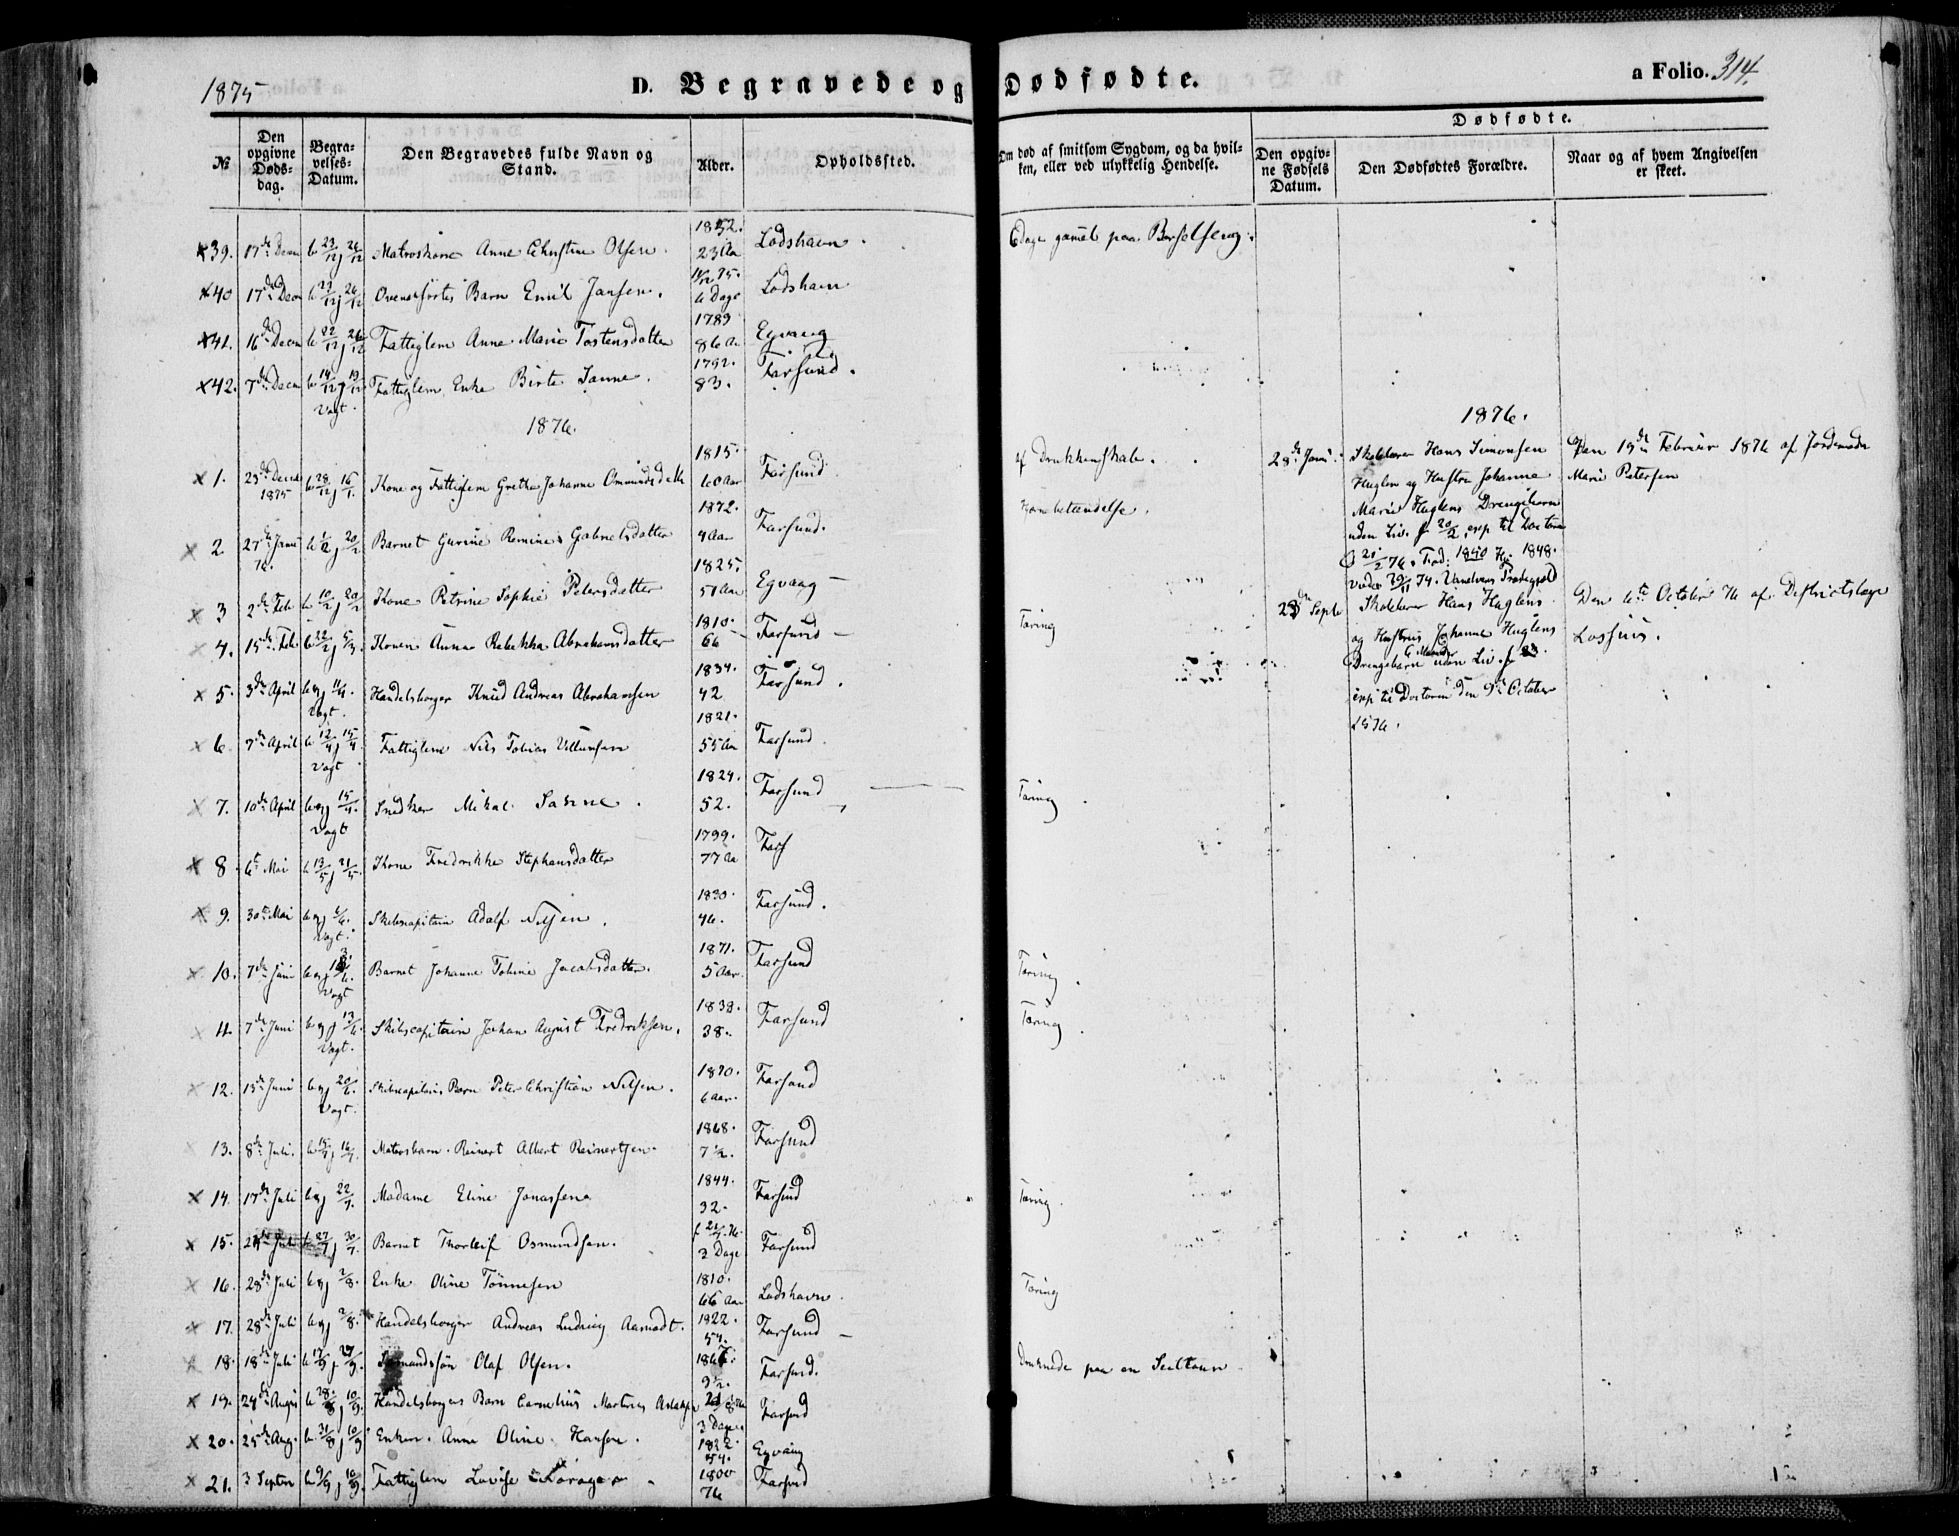 1875
D. Begravede og Dødfødte.
a Folio. 314.
№
Den opgivne Døds-dag.
Begra-velses-Datum.
Den Begravedes fulde Navn og Stand.
Alder.
Opholdssted.
Om død af smitsom Sygdom, og da hvil-ken, eller ved ulykkelig Hendelse.
Dødfødte.
Den opgiv-ne Fødsels Datum.
Den Dødfødtes Forældre.
Naar og af hvem Angivelsen er skeet.
39. 17de Decem b 23/12 j 26/12 Matroskone Anne Christine Olsen. 1852. 23 Aar Lodshavn. 6 dage gamel paa Barselseng.
40 17de Decem b 23/12 j 26/12 Ovenanførtes Barn Emil Jansen. 11/12 75. 6 Dage Lodshavn
41. 16de Decem b 22/12 j 26/12 Fattiglem Anne Marie Tostensdatter 1789 86 Aar Egvaag
42. 7de Decem b 14/12 j 19/12 Vagt. Fattiglem Enke Birte Sanne. 1792. 83. Farsund.
1876.
1876.
1. 23de Decem 1875 b 28/12 j 16/1. Kone og Fattiglem Grethe Johanne Ommundsdatt 1815. 60 Aar Farsund af Drukkenskab.
2. 27de Janu 76. b 1/2 j 20/2 Barnet Gurine Remine Gabrielsdatter 1872. 4 Aar Farsund. Hjernebetændelse.
3 2de Feb b 10/2 j 20/2 Kone Petrine Sophie Petersdatter 1825. 51 Aar Egvaag
4. 15de Feb b 22/2 j 5/3. Konen Anna Rebekka Abrahamsdatter 1810. 66 Farsund Tæring
5. 3de April b og j 11/4. Vagt. Handelsborger Knud Andreas Abrahamsen 1834. 42 Farsund.
6. 7de April b 12/4 j 15/4. Vagt Fattiglem Nils Tobias Villumsen 1821. 55 Aar Farsund
7. 10de April b og j 15/4. Vagt Snedker Mikal Sanne. 1824. 52. Farsund Tæring
8. 6te Mai b 13/5 j 21/5. Kone Fredrikke Stephansdatter 1799. 77 Aar Fars
9. 30te Mai b og j 6/6. Vagt. Skibscapitain Adolf Nilsen. 1830. 46. Farsund.
10. 7de Juni b og j 13/6. Vagt Barnet Johanne Tobine Jacobsdatter. 1871. 5 Aar. Farsund Tæring
11. 7de Juni b og j 13/6. Vagt. Skibscapitain Johan August Fredriksen. 1838. 38. Farsund Tæring
12. 15de Juni b og j 20/6. Vagt. Skibscapitains Barn Peter Christian Nilsen. 1870. 6 Aar. Farsund
13. 8de Juli. b 15/7 j 16/7. Matrosbarn Reinert Albert Reinertsen. 1868. 7 1/2. Farsund
14. 17de Juli b og j 22/7. Madame Eline Jonassen 1844. 32. Farsund Tæring.
15. 24de Juli b 27/7 j 30/7. Barnet Thorleif Osmundsen. f. 21/7 76. 3 Dage Farsund
16. 28de Juli b og j 2/8. Enke Oline Tønnesen 1810. 66 Aar Lodshavn. Tæring
17. 28de Juli b og j 2/8. Handelsborger Andreas Ludvig Aamodt. 1822. 54. Farsund
18. 18de Juli b 17/9 j 27/9. Sømandssøn Olaf Olsen. 1866. 9 1/2. Farsund. Druknede paa en Seiltour
19. 24de August b 28/8 j 10/9. Handelsborgers Barn Cornelius Martinius 3 Dage Farsund
20. 25de Aug. b 31/8 j 10/9 Enken Anne Oline Hansen. 1822. 54. Egvaag
21. 3 Septem b 9/9 j 10/9. Fattiglem Lovise 1800 76 Farsund
28de Janu. Skolelærer Hans Simonsen
Huglen og Hustru Johanne
Marie Huglens Drengebarn
uden Liv. j 20/2. exp til Doctoren
21/2 76. Fad: 1840 1848.
viede 29/11 74. Vanelvens Præstegjeld
Den 19de Februar 1876 af Jordemoder
Marie Petersen
23de Septe Skolelærer Hans Huglens
og Hustrus Johanne Huglens
Drengebarn 6 Maaneder uden Liv.
exp til Doctoren den 9de October
1876.
Den 6te October 76 af Districtslæge
Lossius.